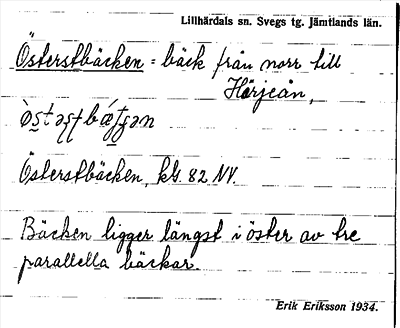 Lillhärdals sn. Svegs tg. Jämtlands län.
Österstbäcken = bäck från norr till
Härjeån,
Österstbäcken, kbl. 82 NV.
Bäcken ligger längst i öster av tre
parallella bäckar.
Erik Eriksson 1934.